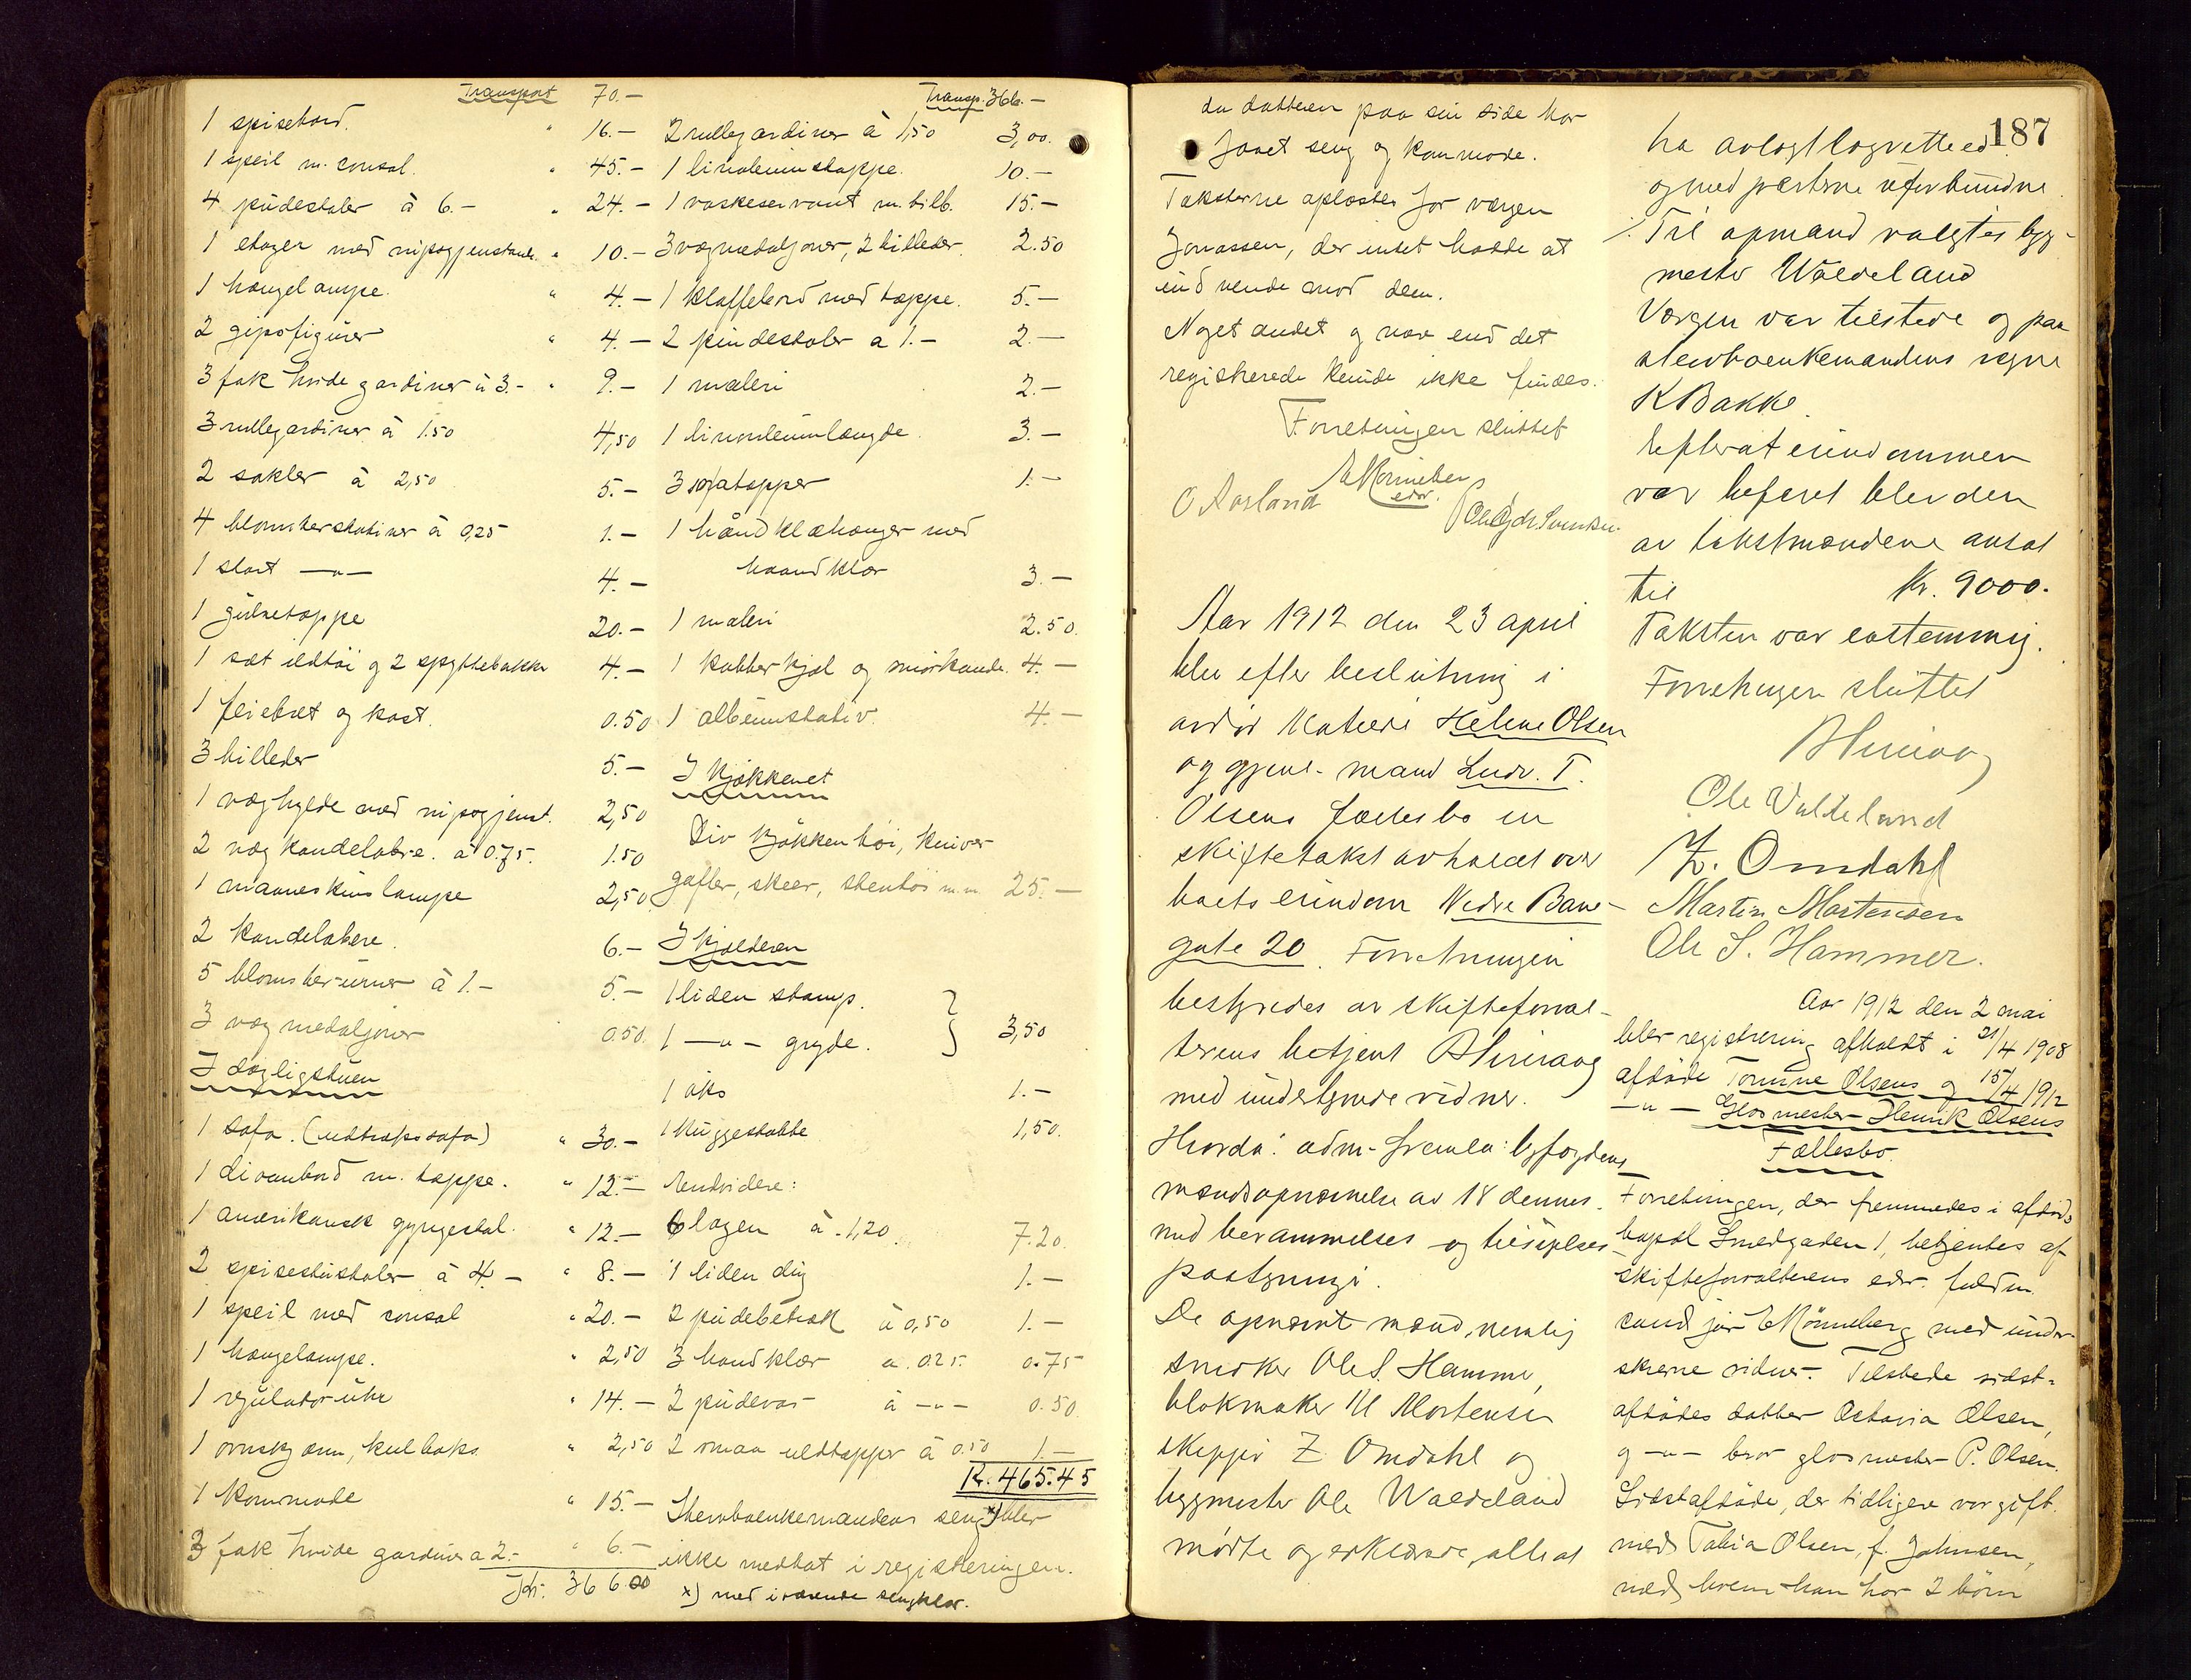 Transport 70.-
1 spisebord. " 16.-
1 speil m. consol. " 45.-
4 pudestoler à 6.- " 24.-
1 etager med nipsgjenstande " 10.-
1 hængelampe. " 4.-
2 gipsfigurer " 4.-
3 fak hvide gardiner à 3.- " 9.-
3 rullegardiner à 1.50 4,50
2 sokler à 2,50 5.-
4 blomsterstativer à 0,25 1.-
1 stort —„— 4.-
1 gulvteppe 20.-
1 sæt ildtøi og 2 spyttebakker 4.-
1 feiebret og kost. 0.50
3 billeder 5.-
1 væghylde med nipsgjenst. 2,50
2 vægkandelabre. à 0.75. 1.50
1 maaneskinslampe 2,50
2 kandelabere. 6.-
5 blomsterurner à 1.- 5.-
3 vægmedaljoner 0.50.
I dagligstuen
1 sofa. (udtrækssofa) " 30.-
1 divanbord m. teppe. " 12.-
1 amerikansk gyngestol. " 12.-
2 spisestustoler à 4.- " 8.-
1 speil med consol " 20.-
1 hængelampe. " 2,50
1 regulator-uhr " 14.-
1 ovnskjærm, kulboks " 2,50
1 kommode " 15.-
3 fak hvide gardiner a 2.- " 6.-
Kr. 366 00
Transp. 366.-
2 rullegardiner à 1,50 3,00.
1 linoleumsteppe. 10.-
1 vaskeservant m. tilb. 15.-
3 vægmedaljoner, 2 billeder. 2.50
1 klaffebord med teppe. 5.-
2 pindestoler a 1.- 2.-
1 maleri 2.-
1 linoleumlængde. 3.-
3 sofatepper 1.-
1 håndklæhænger med
haandklær 3.-
1 maleri 2.50.
1 kobberkjel og smørkande. 4.-
1 albumstativ. 4.-
I kjøkkenet
Div kjøkkentøi, kniver
gafler, skeer, stentøi m.m 25.-
I kjælderen
1 liden stamp.
1 —„— gryde. } 3,50
1 øks 1.-
1 huggestabbe 1,50.
Endvidere:
6 lagen à 1,20 7.20.
1 liden dug 1.-
2 pudebetræk à 0,50 1.-
3 handklær a. 025. 0.75
2 pudevar à —„— 0.50.
2 smaa uldtepper à 0.50 1.-
Kr. 465.45
Stervboenkemandens seng x) blev
ikke medtat i registreringen.
x) med iværende sengklær.
187
da datteren paa sin side har
faaet seng og kommode.
Taksterne oplæstes for værgen
Jonassen, der intet hadde at
indvende mod dem.
Noget andet og mer end det
registrerede kunde ikke findes.
Forretningen sluttet
E Mønneberg
edsv.
O Aarland
Aar 1912 den 23 april
blev efter beslutning i
avdød Helene Olsen
og gjenl. mand Ludv. T.
Olsens fællesbo en
skiftetakst avholdt over
boets eiendom Nedre Bane-
gate 20. Forretningen
bestyredes av skifteforval-
terens betjent
med undertegnede vidner.
Hvorda: adm. fremla: byfogdens
mandsopnævnelse av 18 dennes.
med berammelses og tilsigelses
paategning.
De opnævnte mænd, nemlig
snedker Ole S. Hammer,
blokmaker M Mortensen
skipper Z Omdahl og
byggmester Ole Waldeland
møtte og erklærede, alle at
ha avlagt lagretteed
og med parterne uforbundne.
Til opmand valgtes byg-
mester Waldeland
Værgen var tilstede og paa
stervboenkemandens vegne
K Bakke.
Efterat eiendommen
var besiget blev den
av takstmændene ansat
til Kr. 9000.
Taksten var enstemmig.
Forretningen sluttet
Ole Valdeland
Z. Omdahl
Martin Mortensen
Ole S. Hammer.
Aar 1912 den 2 mai
blev registrering afholdt i 21/4 1908
afdøde Tomine Olsens og 15/4 1912
—„— Glasmester Henrik Olsens
Fællesbo.
Forretningen, der fremmedes i afdødes
bopæl Smedgaden 1, betjentes af
skifteforvalterens edsv. fuldm.
cand jur E Mønneberg med under-
skrevne vidner. Tilstede sidst-
afdødes datter Octavia Olsen,
og —„— bror glasmester P. Olsen.
Sidstafdøde, der tidligere var gift
med Tobia Olsen, f. Johnsen,
med hvem han har 2 børn